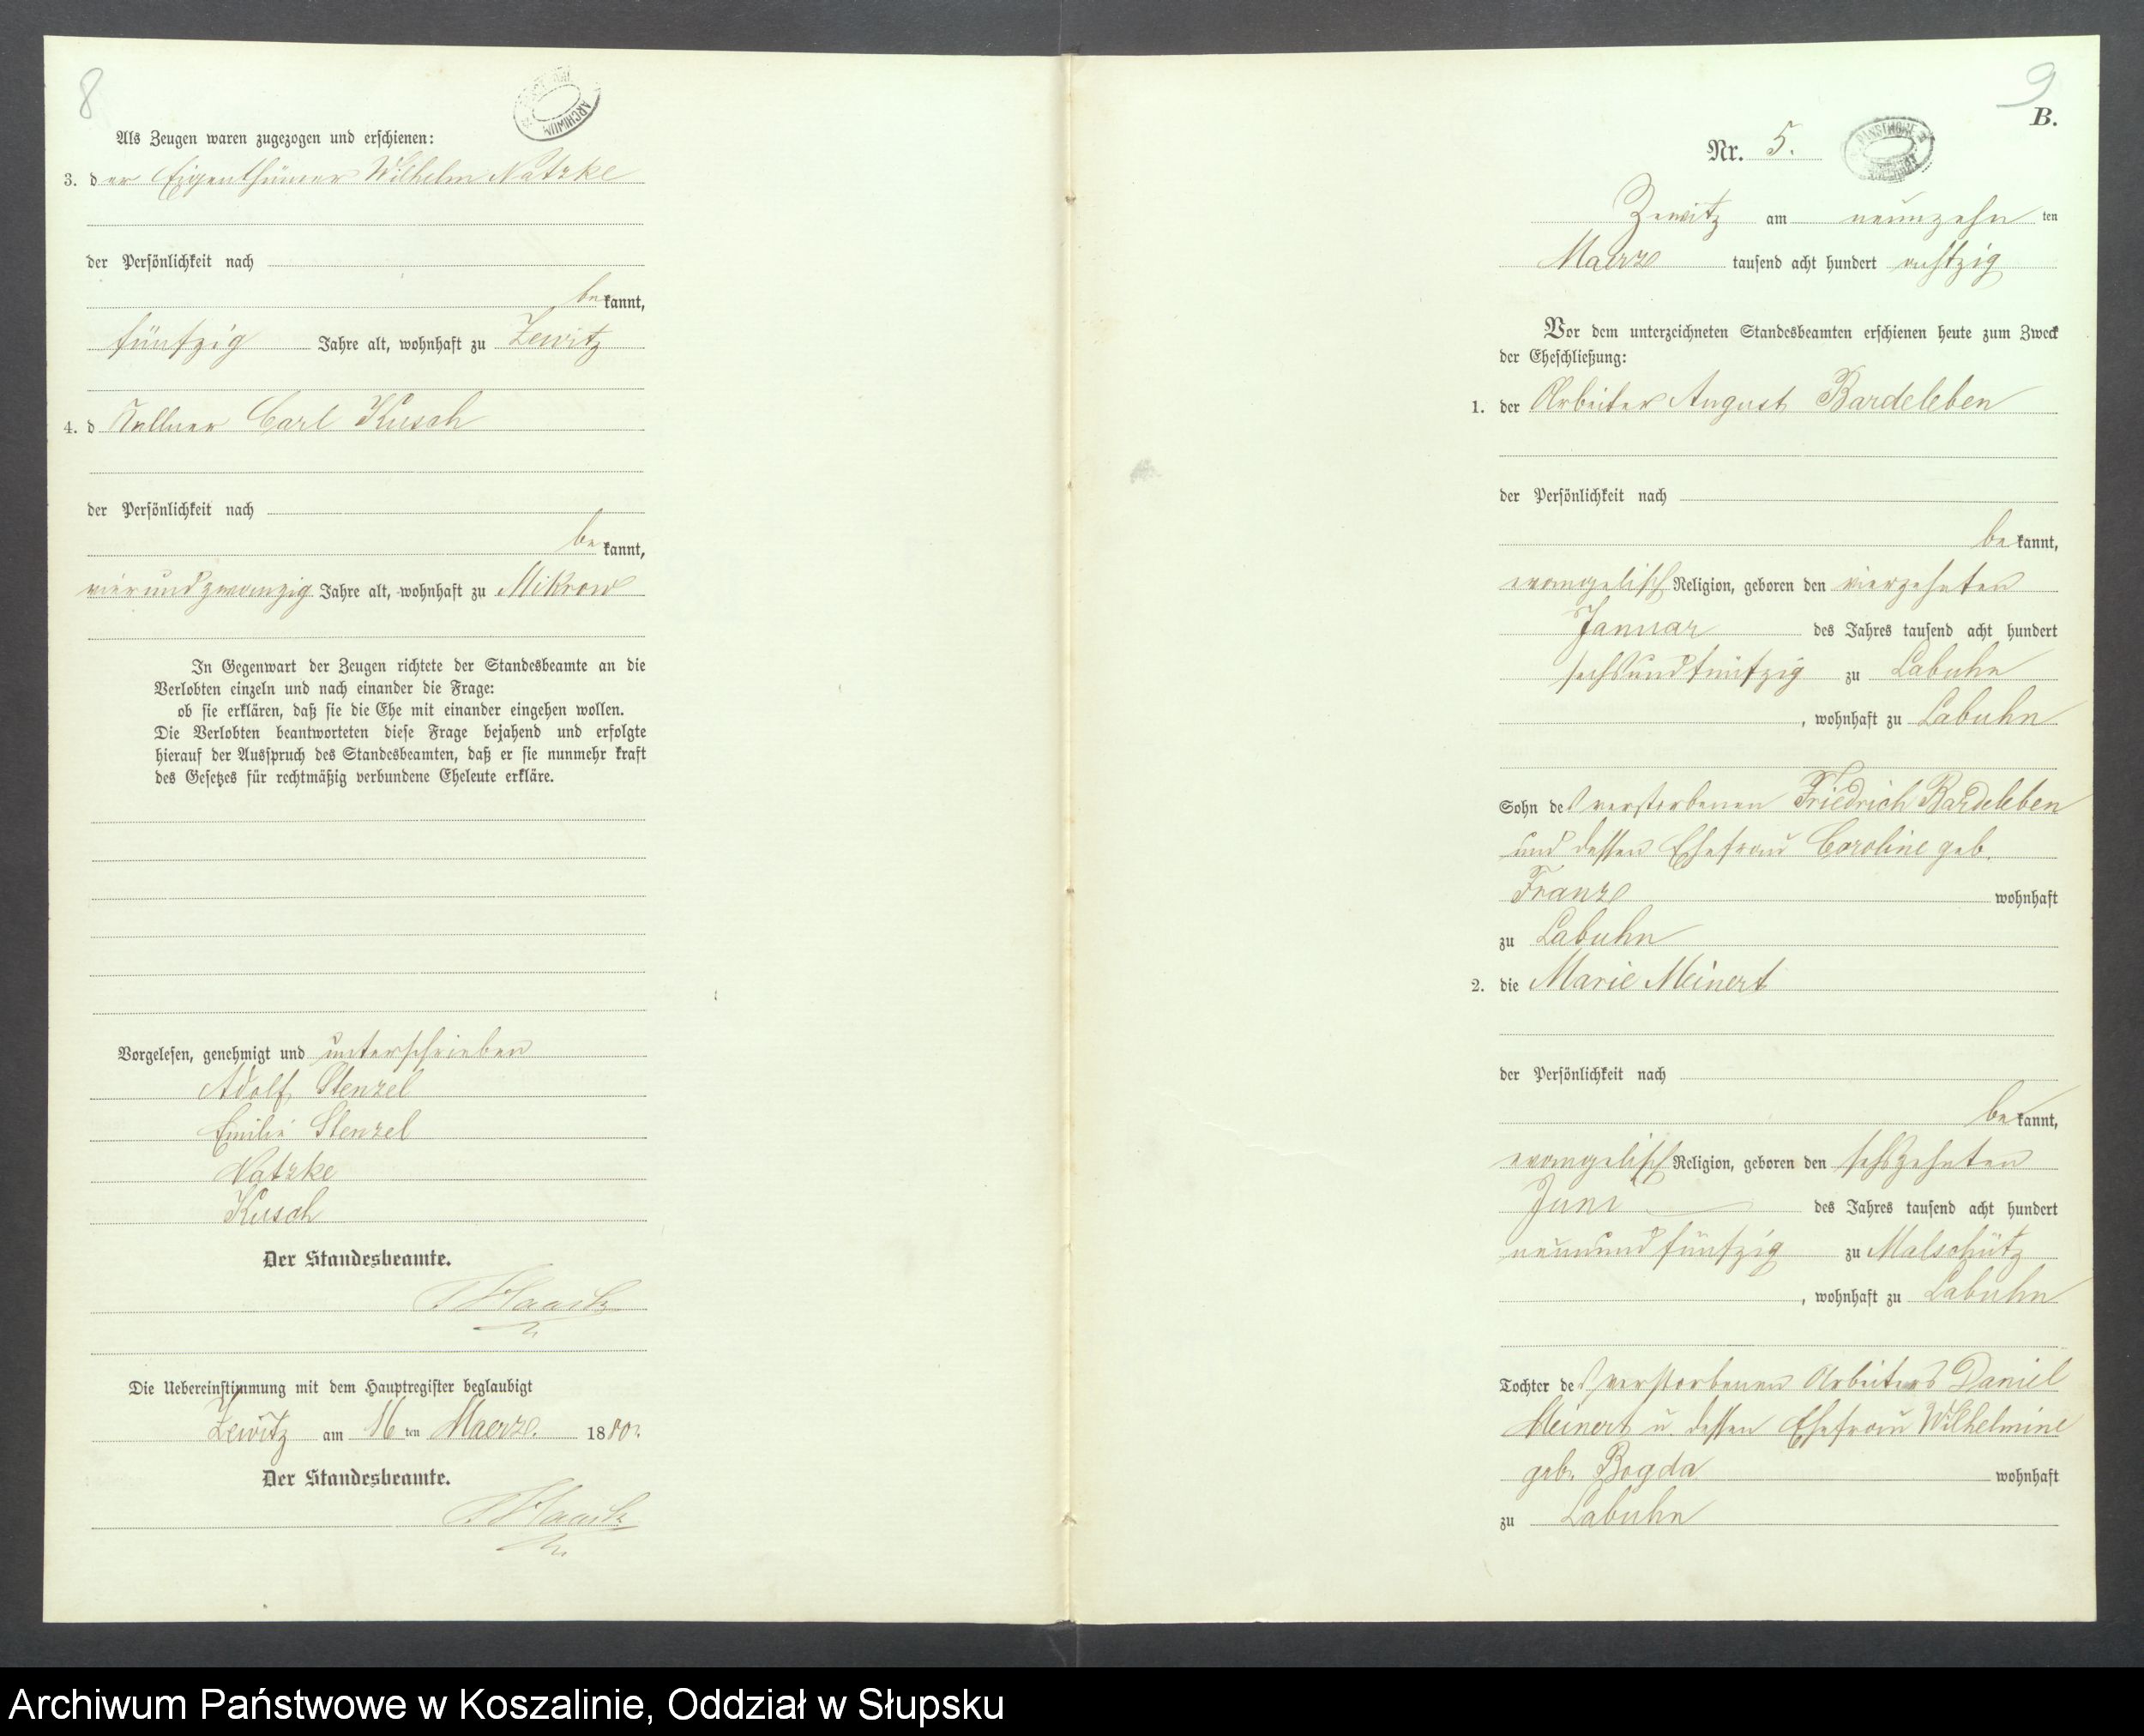 8
ARCHIWUM
Als Zeugen waren zugezogen und erschienen:
3. der Eigenthümer Wilhelm Natzke
der Persönlichkeit nach
bekannt,
fünfzig Jahre alt, wohnhaft zu Zewitz
4. d Carl Kusch
der Persönlichkeit nach
bekannt,
vierundzwanzig Jahre alt, wohnhaft zu Mikrow
In Gegenwart der Zeugen richtete der Standesbeamte an die
Verlobten einzeln und nach einander die Frage:
ob sie erklären, daß sie die Ehe mit einander eingehen wollen.
Die Verlobten beantworteten diese Frage bejahend und erfolgte
hierauf der Ausspruch des Standesbeamten, daß er sie nunmehr kraft
des Gesetzes für rechtmäßig verbundene Eheleute erkläre.
Vorgelesen, genehmigt und unterschrieben
Adolf Stenzel
Emilie Stenzel
Natzke
Kusch
Der Standesbeamte.
Die Uebereinstimmung mit dem Hauptregister beglaubigt
Zewitz am 16 ten Maerz. 1880.
Der Standesbeamte.
9
B.
Nr. 5.
Zewitz am neunzehn ten
Maerz tausend acht hundert achtzig
Vor dem unterzeichneten Standesbeamten erschienen heute zum Zweck
der Eheschließung:
1. der Arbeiter August Bardeleben
der Persönlichkeit nach
bekannt,
evangelisch Religion, geboren den vierzehnten
Januar des Jahres tausend acht hundert
sechsundfünfzig zu Labuhn
, wohnhaft zu Labuhn
Sohn des verstorbenen Friedrich Bardeleben
und dessen Ehefrau Caroline geb.
Franz wohnhaft
zu Labuhn
2. die Marie Meinert
der Persönlichkeit nach
bekannt,
evangelisch Religion, geboren den sechszehnten
Juni des Jahres tausend acht hundert
neunundfünfzig zu Malschütz
, wohnhaft zu Labuhn
Tochter des verstorbenen Arbeiters Daniel
Meinert u. dessen Ehefrau Wilhelmine
geb. Bogda wohnhaft
zu Labuhn
Archiwum Państwowe w Koszalinie, Oddział w Słupsku